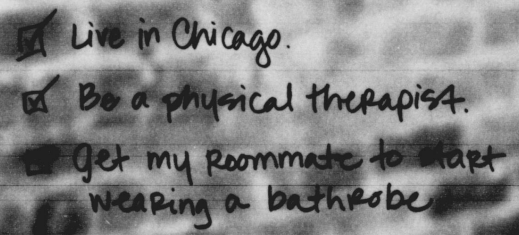 Live in Chicago.
Be a physical therapist.
Get my roommate to start
wearing a bathrobe